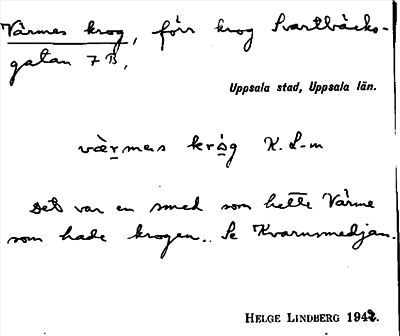 Värmes krog, förr krog Svartbäcks-
gatan 7 B,
Uppsala stad, Uppsala län.
værmas krog K. L-m
Det var en smed som hette Värme
som hade krogen. Se Kvarnsmedjan.
HELGE LINDBERG 1942.